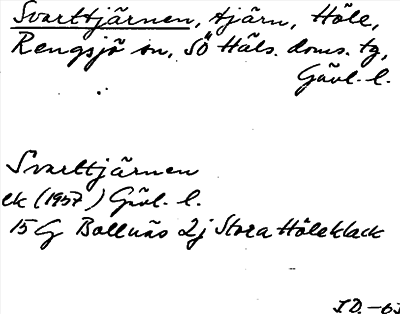 Svarttjärnen, tjärn, Höle,
Rengsjö sn, SÖ Häls. doms. tg,
Gävl. l.
Svarttjärnen
ek (1957) Gävl. l.
15G Bollnäs 2j Stora Höleklack
I D. -63